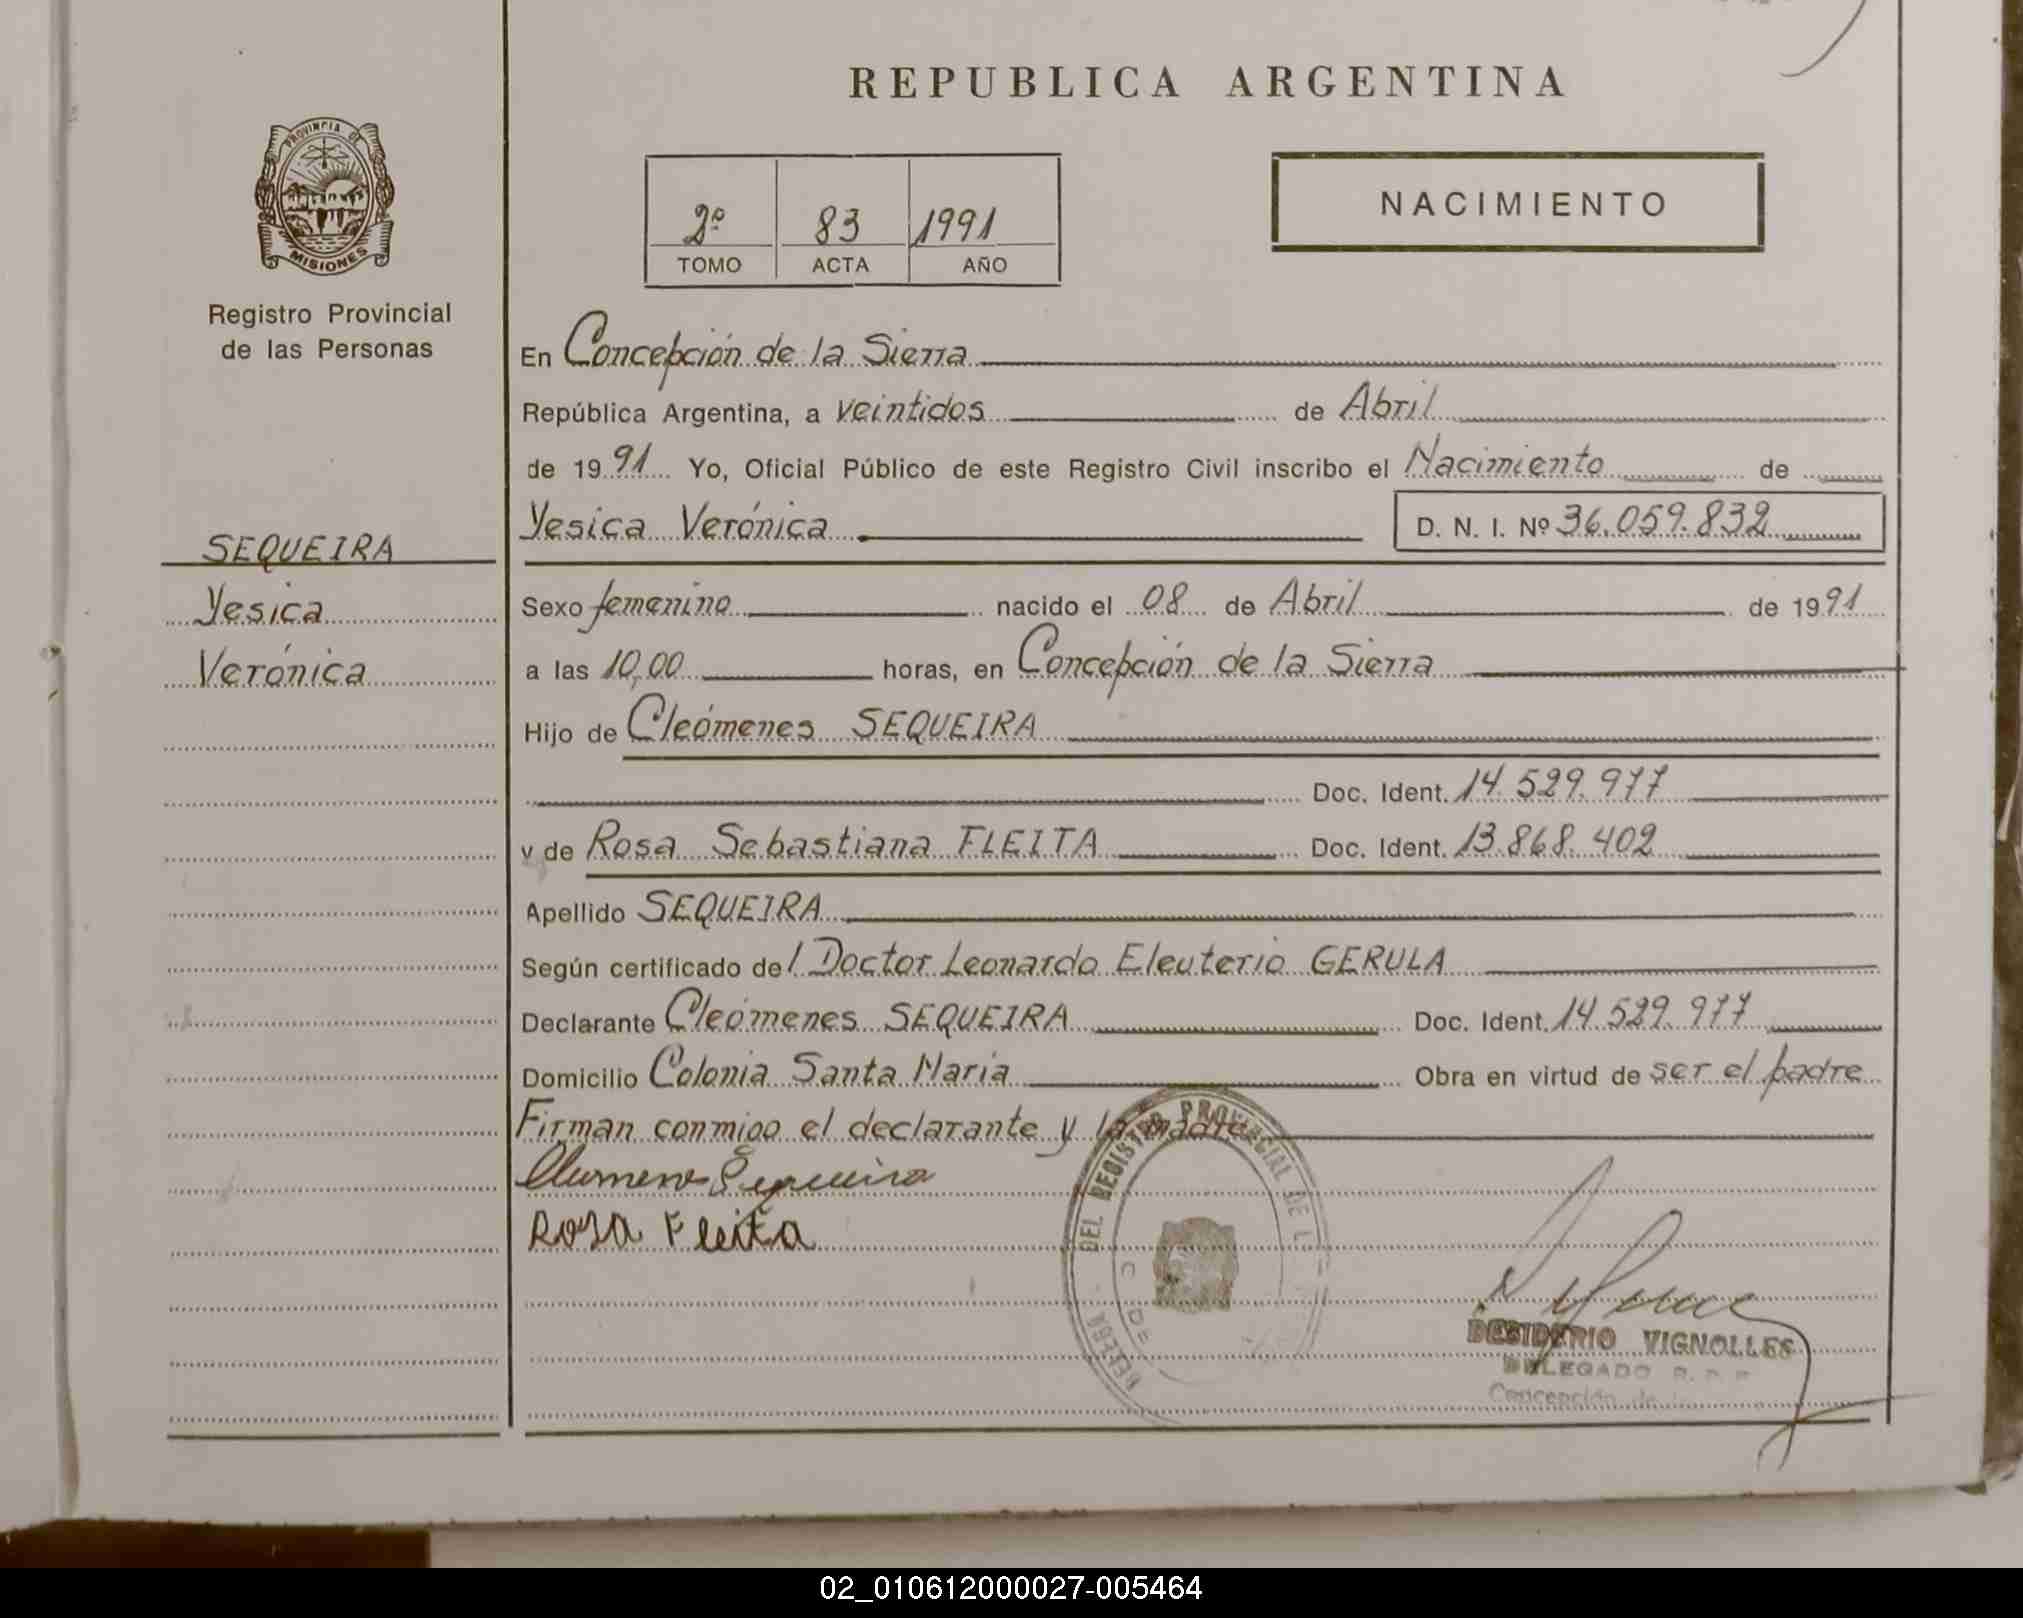 REPUBLICA ARGENTINA
PROVINCIA DE
MISIONES
Registro Provincial
de las Personas
2º 83 1991
TOMO ACTA AÑO
NACIMIENTO
SEQUEIRA
Yesica
Verónica
En Concepción de la Sierra
República Argentina, a veintidos de Abril
de 1991 Yo, Oficial Público de este Registro Civil inscribo el Nacimiento de
Yesica Verónica D. N. I. Nº 36.059.832
Sexo femenino nacido el 08 de Abril de 1991
a las 10,00 horas, en Concepción de la Sierra
Hijo de Cleómenes SEQUEIRA
Doc. Ident. 14.529.977
y de Rosa Sebastiana FLEITA Doc. Ident. 13.868.402
Apellido SEQUEIRA
Según certificado del Doctor Leonardo Eleuterio GERULA
Declarante Cleómenes SEQUEIRA Doc. Ident. 14.529.977
Domicilio Colonia Santa María Obra en virtud de ser el padre
Firman conmigo el declarante y la madre
Sequeira
Rosa Fleita
DEL REGISTRO PROVINCIAL DE L
DESIDERIO VIGNOLLES
DELEGADO R. P. P.
Concepción de la
02_010612000027-005464